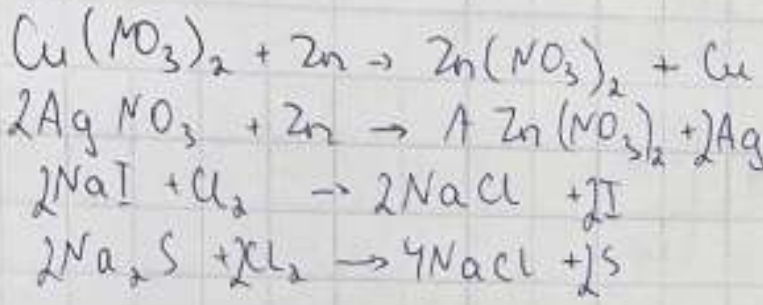 Cu(NO₃)₂ + Zn → Zn(NO₃)₂ + Cu
2AgNO₃ + Zn → A Zn(NO₃)₂ + 2Ag
2NaI + Cl₂ → 2NaCl + 2I
2Na₂S + 2Cl₂ → 4NaCl + 2S